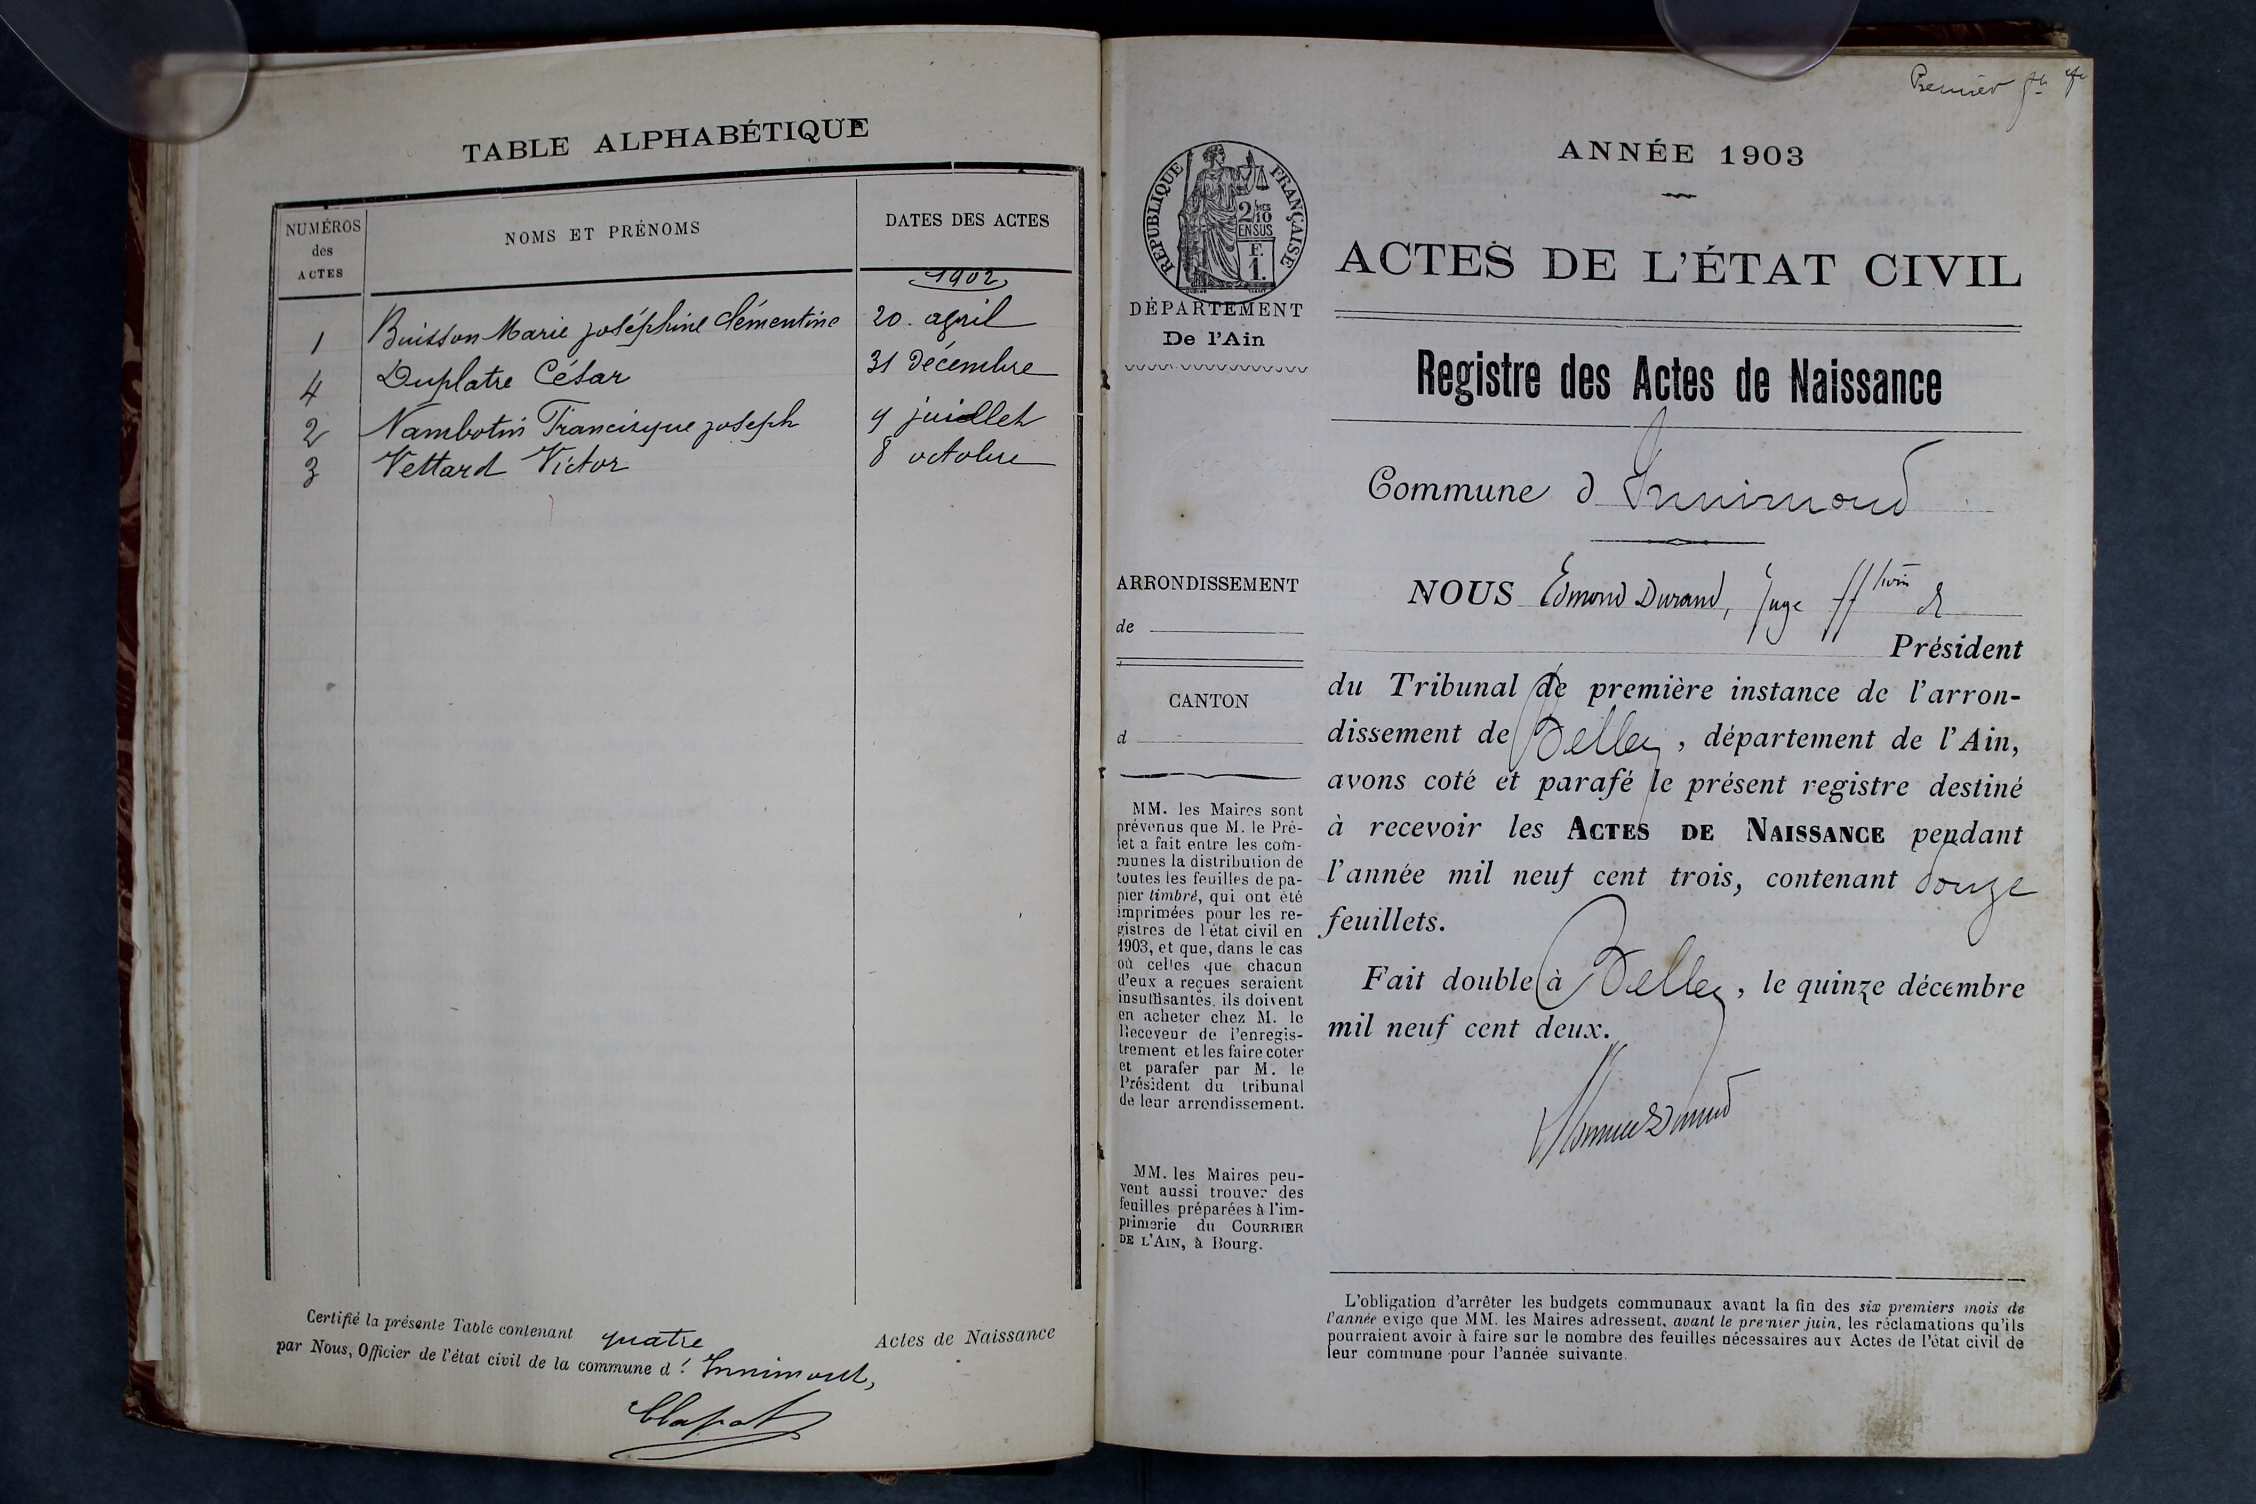 TABLE ALPHABÉTIQUE
NUMÉROS
des
ACTES
NOMS ET PRÉNOMS
DATES DES ACTES
1902
1 Buisson Marie joséphine Clémentine 20 april
4 Duplatre César 31 Décembre
2 Nambotin Francisque joseph 9 juillet
3 Vettard Victor 8 octobre
Certifié la présente Table contenant quatre Actes de Naissance
par Nous, Officier de l'état civil de la commune d'Innimont,
Clapot
Premier
ANNÉE 1903
RÉPUBLIQUE FRANÇAISE
2/10
EN SUS
F.
1.
DÉPARTEMENT
De l'Ain
ARRONDISSEMENT
de
CANTON
d
MM. les Maires sont
prévenus que M. le Pré-
fet a fait entre les com-
munes la distribution de
toutes les feuilles de pa-
pier timbré, qui ont été
imprimées pour les re-
gistres de l'état civil en
1903, et que, dans le cas
où celles que chacun
d'eux a reçues seraient
insuffisantes, ils doivent
en acheter chez M. le
Receveur de l'enregis-
trement et les faire coter
et parafer par M. le
Président du tribunal
de leur arrondissement.
MM. les Maires peu-
vent aussi trouver des
feuilles préparées à l'im-
primerie du COURRIER
DE L'AIN, à Bourg.
ACTES DE L'ÉTAT CIVIL
Registre des Actes de Naissance
Commune d Innimond
NOUS Edmond Durand, Juge
Président
du Tribunal de première instance de l'arron-
dissement de Belley, département de l'Ain,
avons coté et parafé le présent registre destiné
à recevoir les ACTES DE NAISSANCE pendant
l'année mil neuf cent trois, contenant douze
feuillets.
Fait double à Belley, le quinze décembre
mil neuf cent deux.
L'obligation d'arrêter les budgets communaux avant la fin des six premiers mois de
l'année exige que MM. les Maires adressent, avant le premier juin, les réclamations qu'ils
pourraient avoir à faire sur le nombre des feuilles nécessaires aux Actes de l'état civil de
leur commune pour l'année suivante.